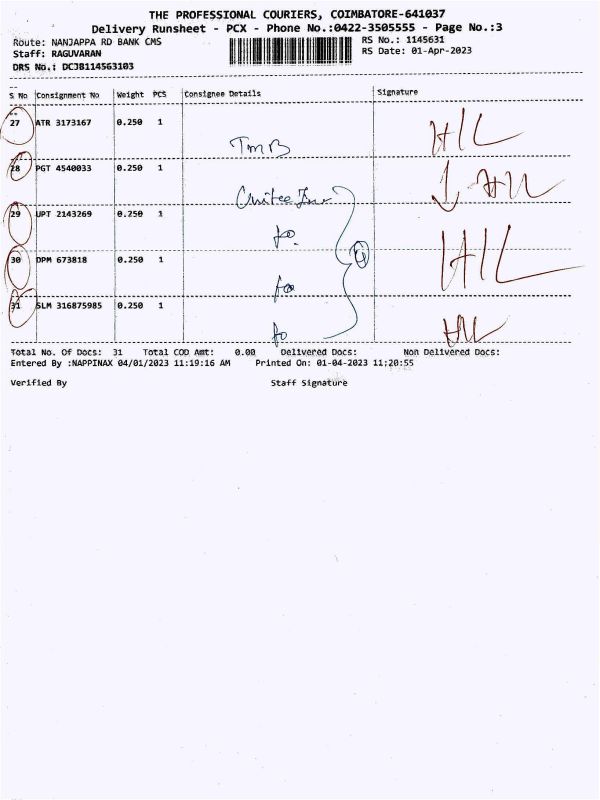 THE PROFESSIONAL COURIERS, COIMBATORE-641037
Delivery Runsheet - PCX - Phone No.:0422-3505555 - Page No.:3
Route: NANJAPPA RD BANK CMS
RS No.: 1145631
Staff: RAGUVARAN
RS Date: 01-Apr-2023
DRS No.: DCJB114563103
S No Consignment No Weight PCS Consignee Details Signature
27 ATR 3173167 0.250 1
TMB
28 PGT 4540033 0.250 1
29 UPT 2143269 0.250 1
do
30 DPM 673818 0.250 1
do
31 SLM 316875985 0.250 1
do
Total No. Of Docs: 31 Total COD Amt: 0.00 Delivered Docs: Non Delivered Docs:
Entered By :NAPPINAX 04/01/2023 11:19:16 AM Printed On: 01-04-2023 11:20:55
Verified By Staff Signature